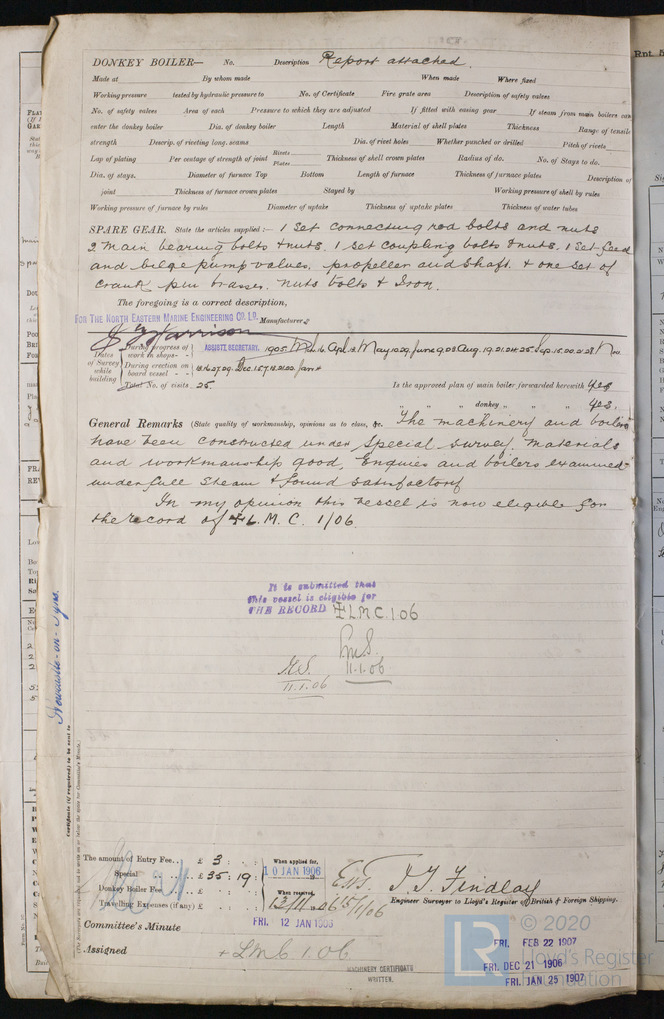 DONKEY BOILER— No. Description Report attached.
Made at By whom made When made Where fixed
Working pressure tested by hydraulic pressure to No. of Certificate Fire grate area Description of safety valves
No. of safety valves Area of each Pressure to which they are adjusted If fitted with easing gear If steam from main boilers can
enter the donkey boiler Dia. of donkey boiler Length Material of shell plates Thickness Range of tensile
strength Descrip. of riveting long. seams Dia. of rivet holes Whether punched or drilled Pitch of rivets
Lap of plating Per centage of strength of joint Rivets Plates Thickness of shell crown plates Radius of do. No. of Stays to do.
Dia. of stays. Diameter of furnace Top Bottom Length of furnace Thickness of furnace plates Description of
joint Thickness of furnace crown plates Stayed by Working pressure of shell by rules
Working pressure of furnace by rules Diameter of uptake Thickness of uptake plates Thickness of water tubes
SPARE GEAR. State the articles supplied:— 1 Set connecting rod bolts and nuts
2 Main bearing bolts & nuts. 1 set coupling bolts & nuts. 1 set feed
and bilge pump valves, propeller and shaft. & one set of
crank pin brasses. nuts bolts & Iron.
The foregoing is a correct description,
FOR THE NORTH EASTERN MARINE ENGINEERING CO. LD. Manufacturer.
Harrison
ASSISTE SECRETARY.
Dates of Survey while building
During progress of work in shops— 1905 Mch. 16 Apl. 13 May 10.29 June 9.
During erection on board vessel — Dec. 1.5.7.13.21.22. Jan 4
Total No. of visits 25.
Is the approved plan of main boiler forwarded herewith yes
" " " donkey " " " yes.
General Remarks (State quality of workmanship, opinions as to class, &c. The machinery and boilers
have been constructed under Special Survey. Materials
and workmanship good, Engines and boilers examined
under full steam & found satisfactory
In my opinion this vessel is now eligible for
the record of + L.M.C. 1/06.
It is submitted that
this vessel is eligible for
THE RECORD + LMC. 1.06
J.M.S.
11.1.06
11.1.06
Newcastle-on-Tyne.
Certificate (if required) to be sent to
The amount of Entry Fee .. £ 3 : :
Special .. £ 35 : 19 :
Donkey Boiler Fee .. £ : :
Travelling Expenses (if any) £ : :
When applied for,
10 JAN 1906
When received,
15/1/06
J. T. Findlay
Engineer Surveyor to Lloyd's Register of British & Foreign Shipping.
Committee's Minute FRI. 12 JAN 1906
Assigned + LMC 1.06
MACHINERY CERTIFICATE
WRITTEN.
FRI. FEB 22 1907
FRI. DEC 21 1906
FRI. JAN 25 1907
© 2020
LR Lloyd's Register
Foundation